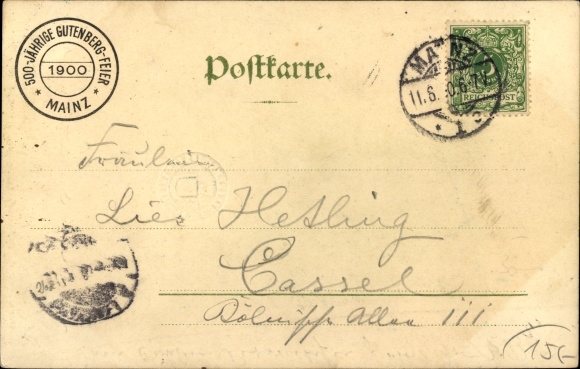 500-JÄHRIGE GUTENBERG-FEIER
1900
* MAINZ *
Postkarte.
MAINZ
11.6.
REICHSPOST
Fräulein
Lies Hetling
Cassel
Kölnische Allee III
15,-